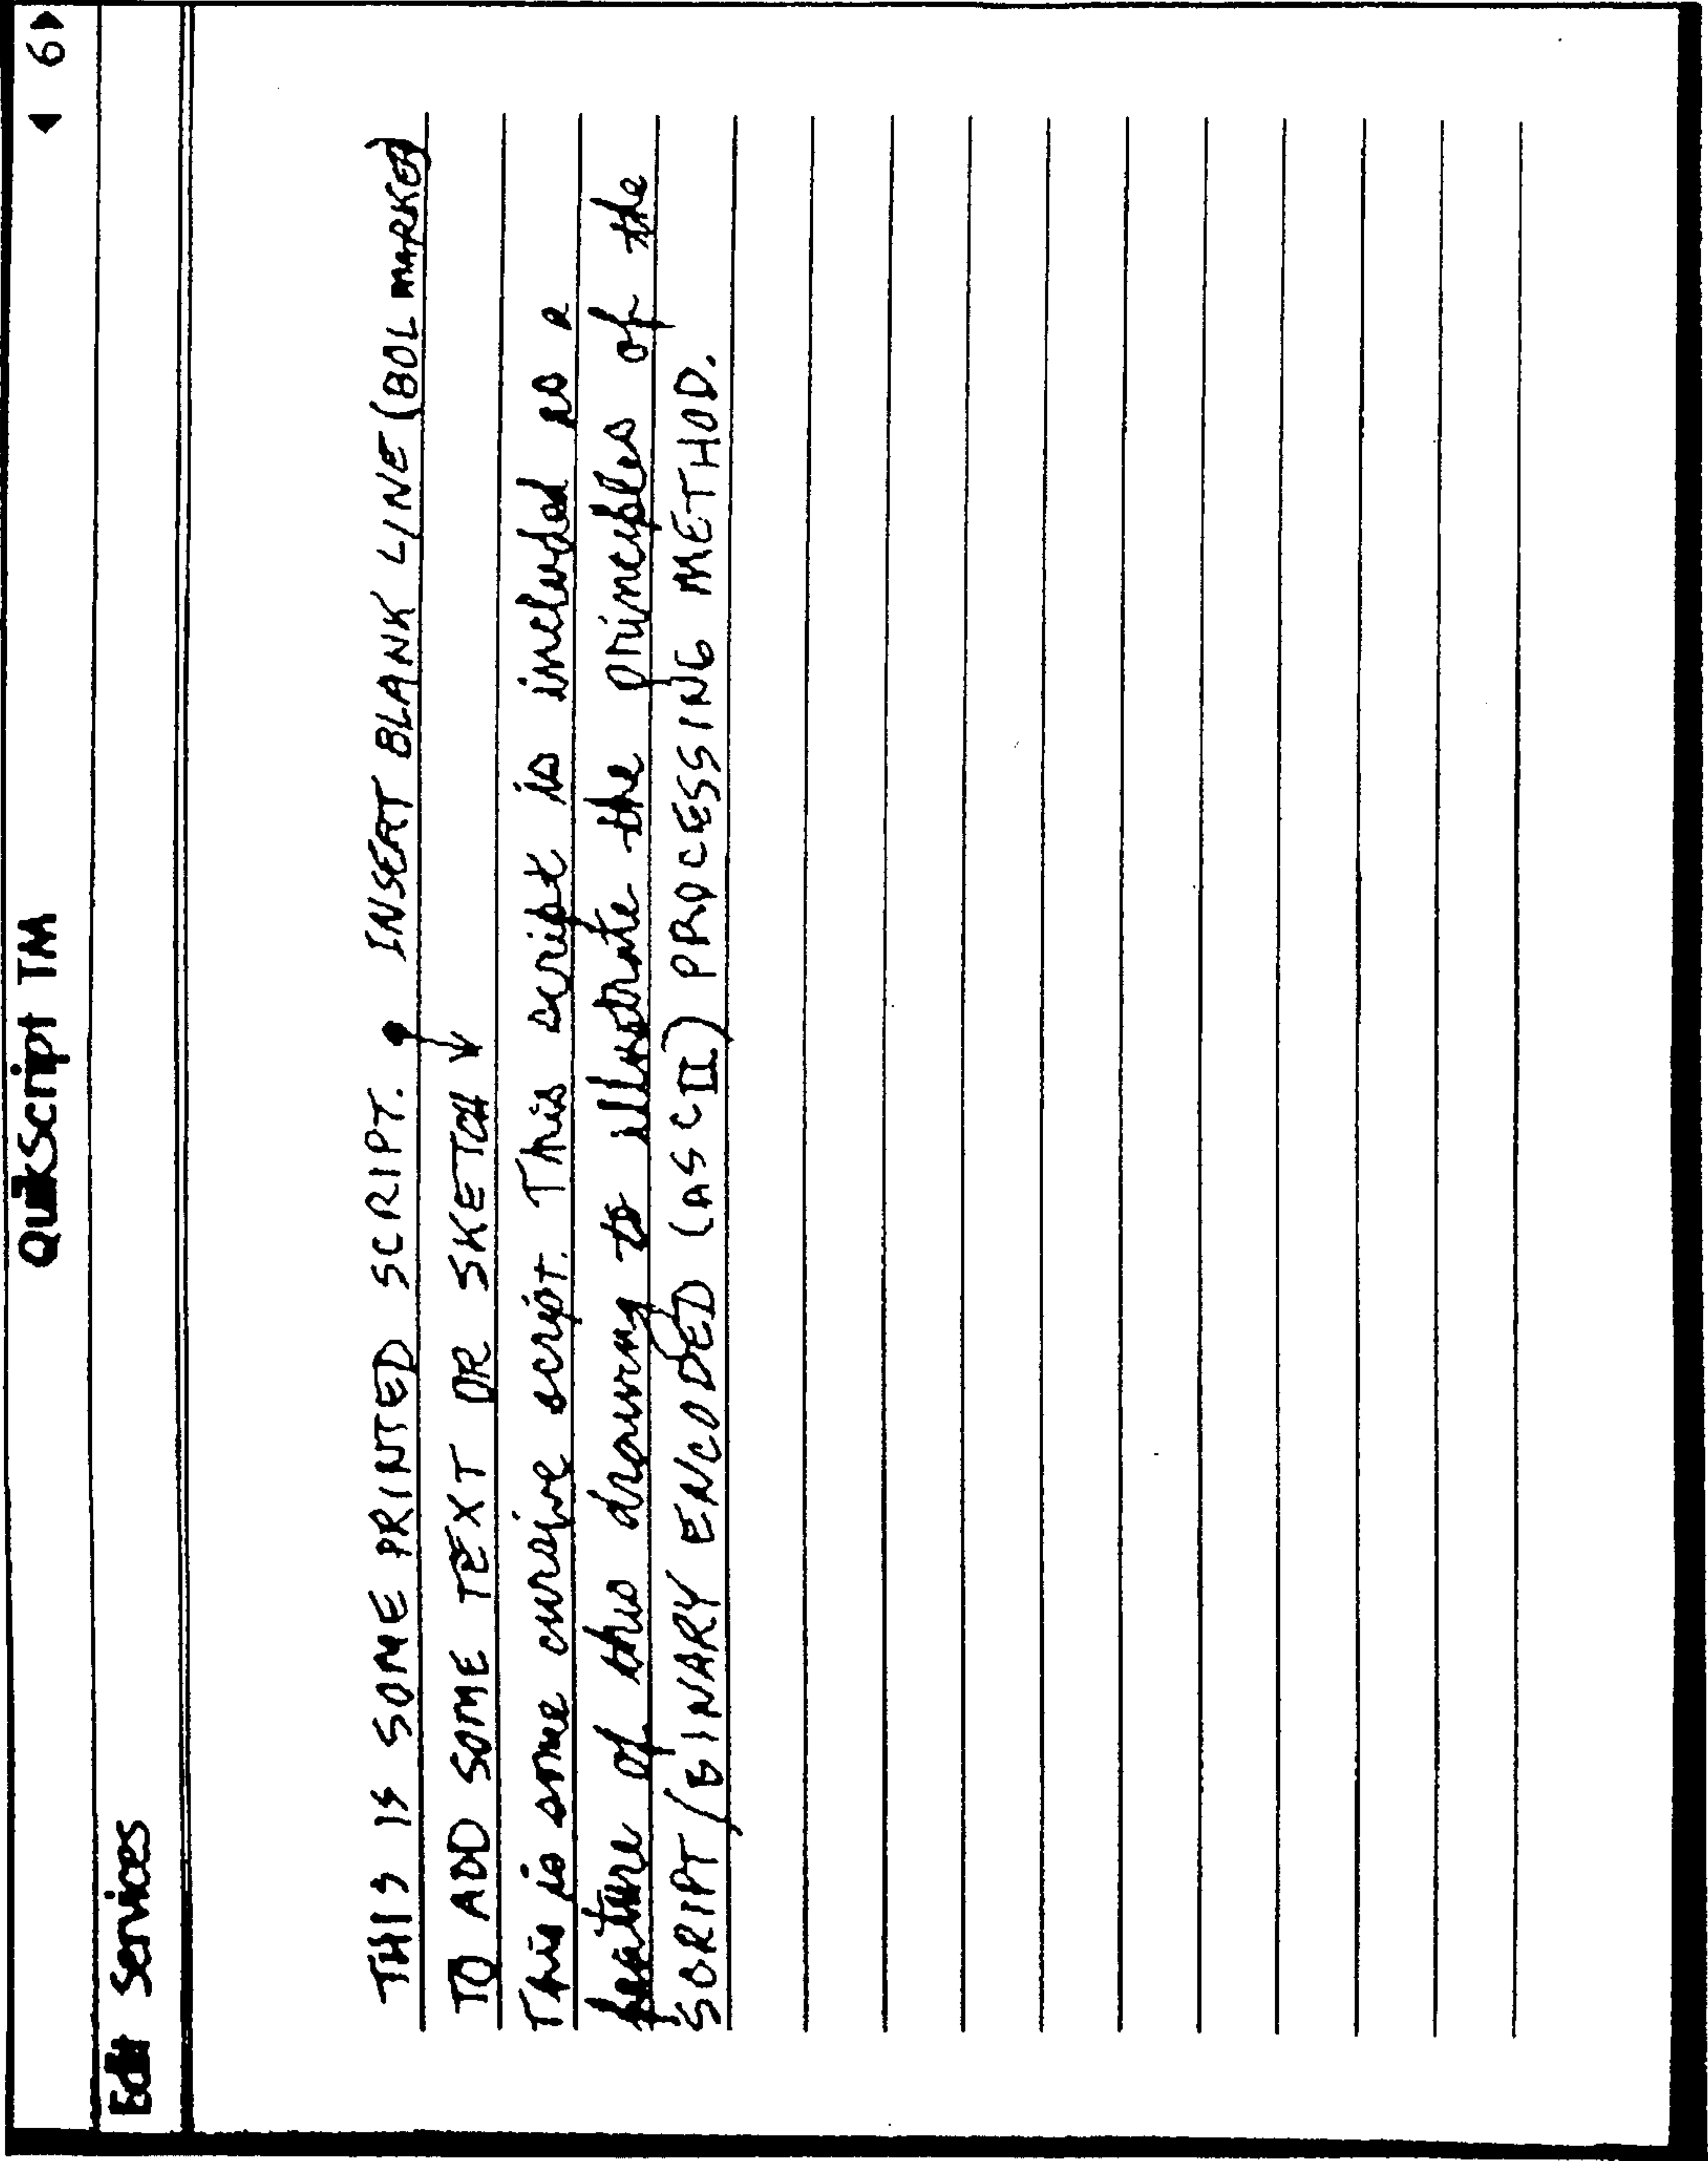 QuikScript TM ◀ 6▷
Edit Services
THIS IS SOME PRINTED SCRIPT. INSERT BLANK LINE (BOL MARKED)
TO ADD SOME TEXT OR SKETCH
This is some cursive script. This script is included as a
feature of this drawing to illustrate the principles of the
SCRIPT/BINARY ENCODED (ASCII) PROCESSING METHOD.